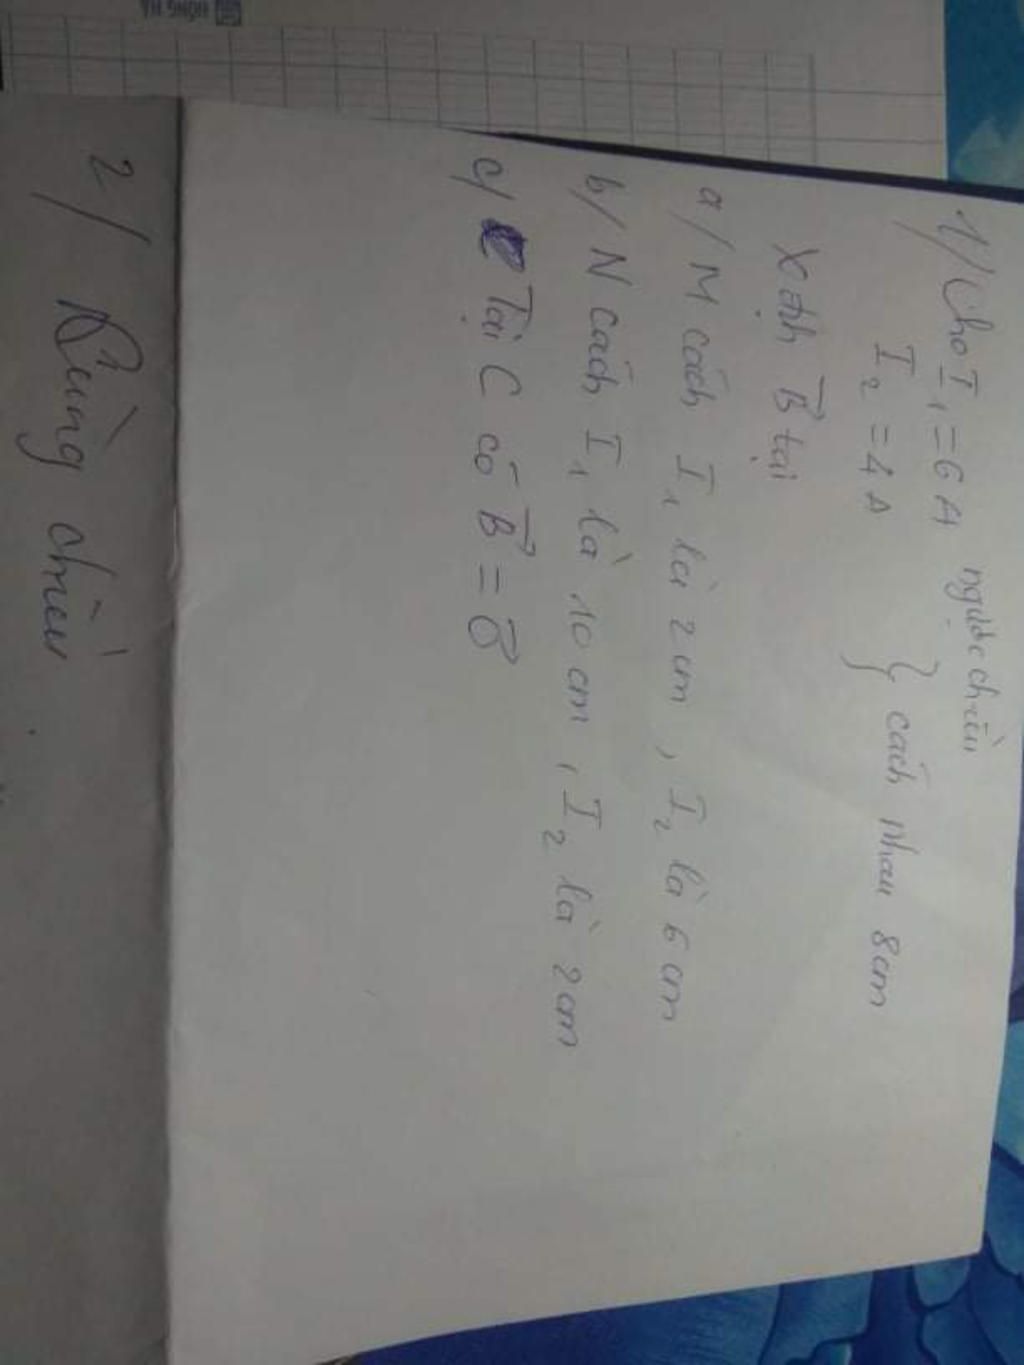 HỒNG HÀ
1/ Cho I₁ = 6A ngược chiều
I₂ = 4A } cách nhau 8cm
Xđịh B⃗ tại
a/ M cách I₁ là 2cm, I₂ là 6cm
b/ N cách I₁ là 10cm, I₂ là 2cm
c/ Tại C có B⃗ = 0⃗
2/ Cùng chiều